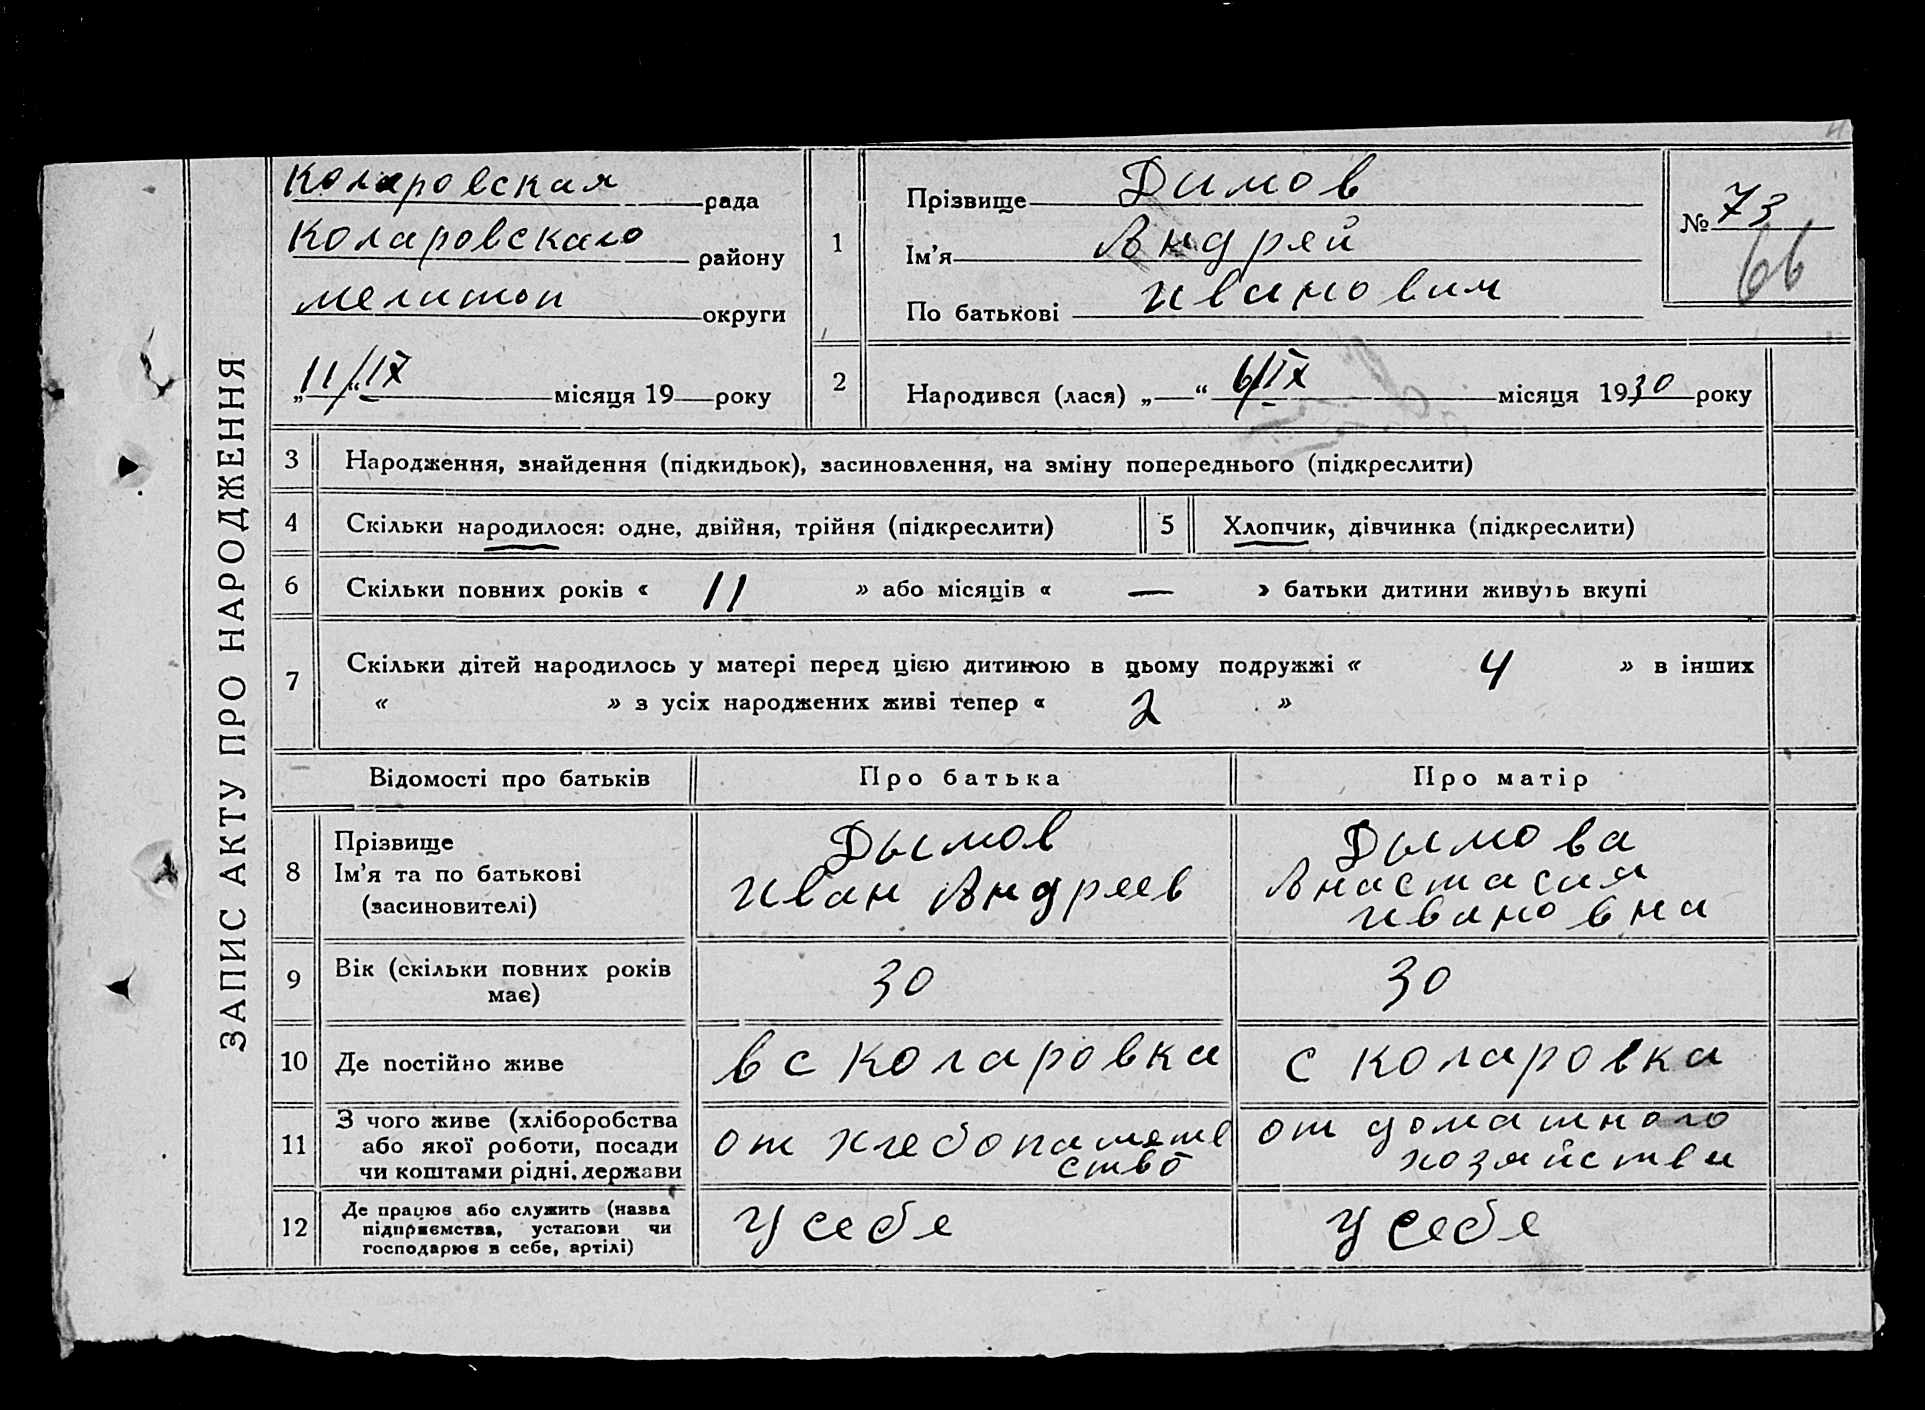 ЗАПИС АКТУ ПРО НАРОДЖЕННЯ
Коларовская рада
Коларовскаго району
мелитоп округи
„11/IX“ місяця 19 року
1
Прізвище Димов
Ім'я Андрей
По батькові иванович
№ 73
66
2
Народився (лася) „ “ 6/IX місяця 1930 року
3 Народження, знайдення (підкидьок), засиновлення, на зміну попереднього (підкреслити)
4 Скільки народилося: одне, двійня, трійня (підкреслити)
5 Хлопчик, дівчинка (підкреслити)
6 Скільки повних років « 11 » або місяців « — » батьки дитини живуть вкупі
7 Скільки дітей народилось у матері перед цією дитиною в цьому подружжі « 4 » в інших
« » з усіх народжених живі тепер « 2 »
Відомості про батьків Про батька Про матір
8 Прізвище
Ім'я та по батькові
(засиновителі)
Дымов
иван Андреев
Дымова
Анастасия
ивановна
9 Вік (скільки повних років
має)
30
30
10 Де постійно живе
в с Коларовка
с коларовка
11 З чого живе (хліборобства
або якої роботи, посади
чи коштами рідні, держави
от
ство
от домашного
хозяйства
12 Де працює або служить (назва
підприємства, установи чи
господарює в себе, артілі)
У себе
У себе